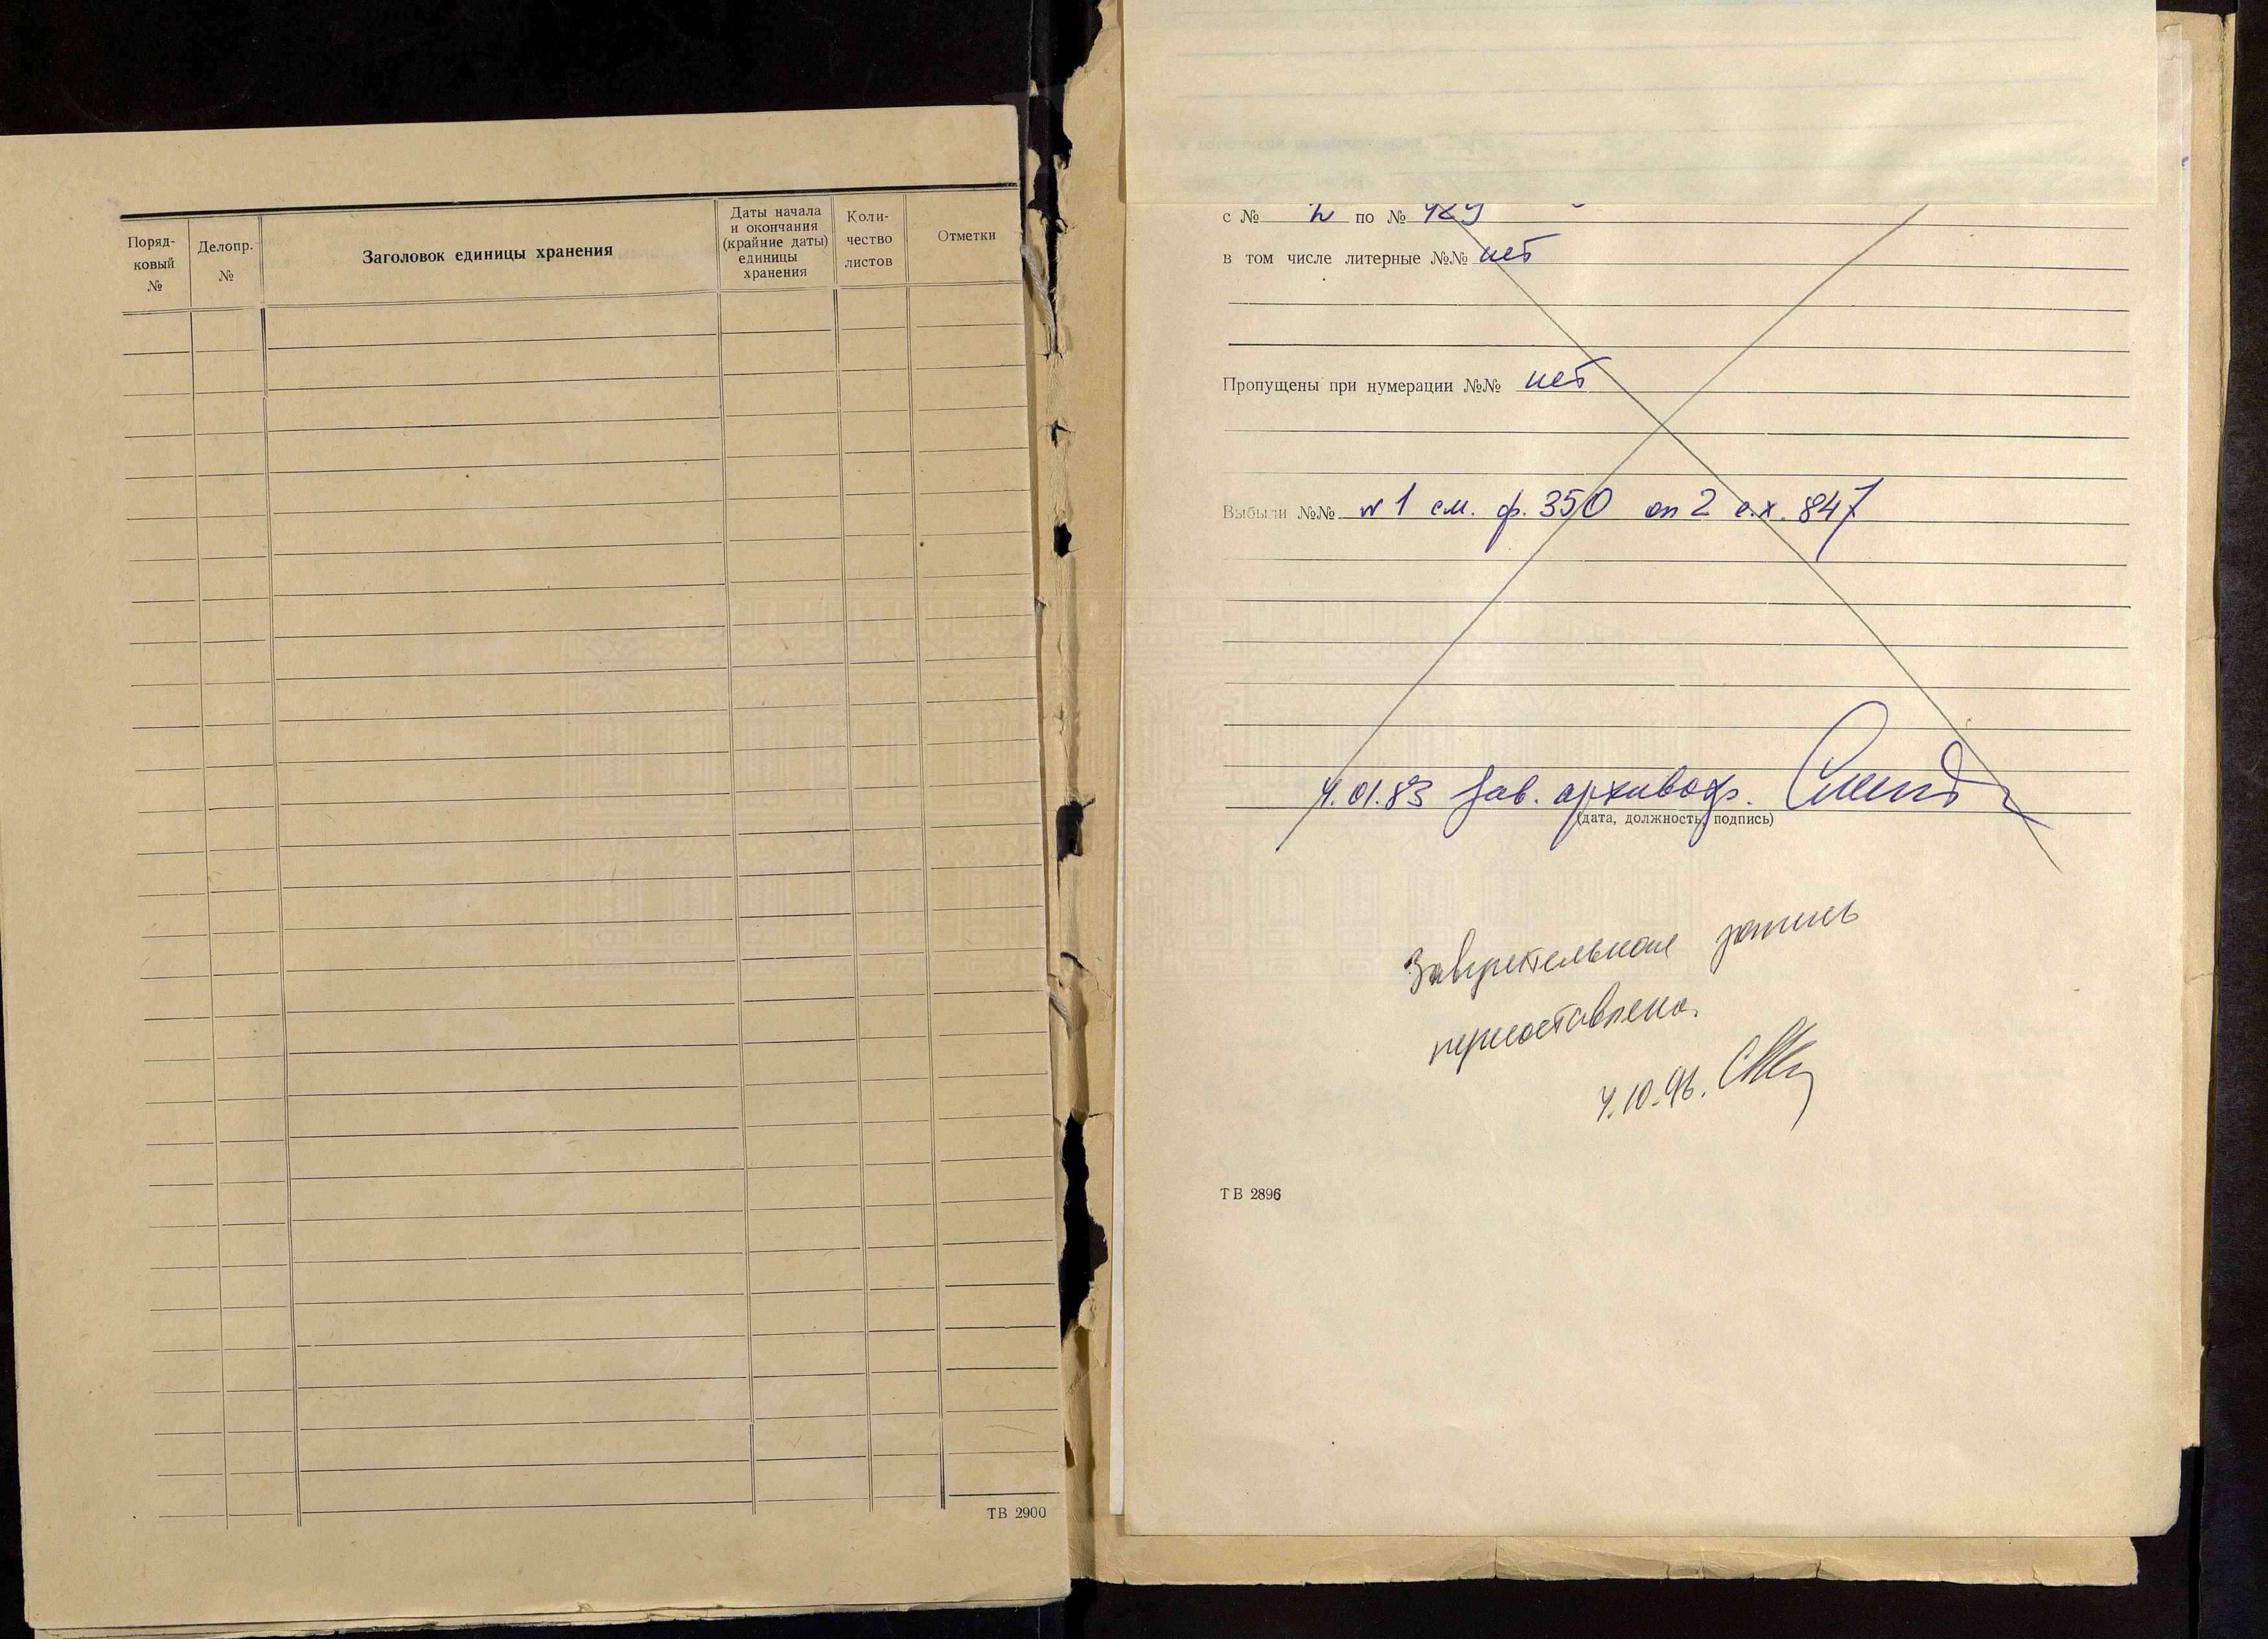 Поряд-
ковый
№
Делопр.
№
Заголовок единицы хранения
Даты начала
и окончания
(крайние даты)
единицы
хранения
Коли-
чество
листов
Отметки
ТВ 2900
с № 2 по № 429
в том числе литерные №№ нет
Пропущены при нумерации №№ нет
Выбыли №№ №1 см. ф. 350 оп 2 е.х. 847
4.01.83 Зав. архивохр.
(дата, должность, подпись)
Заверительная запись
пересоставлена.
4.10.96.
ТВ 2896